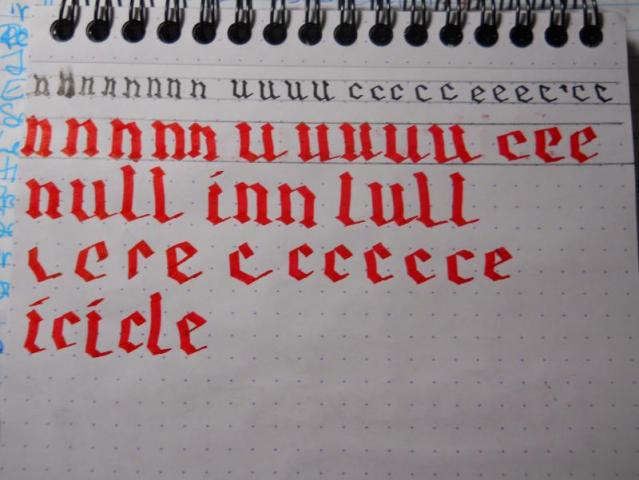 n n n n n n n n u u u u c c c c c e e e c c c
n n n n n n u u u u u c e e
null inn lull
c r e c c c c c c c e
icicle